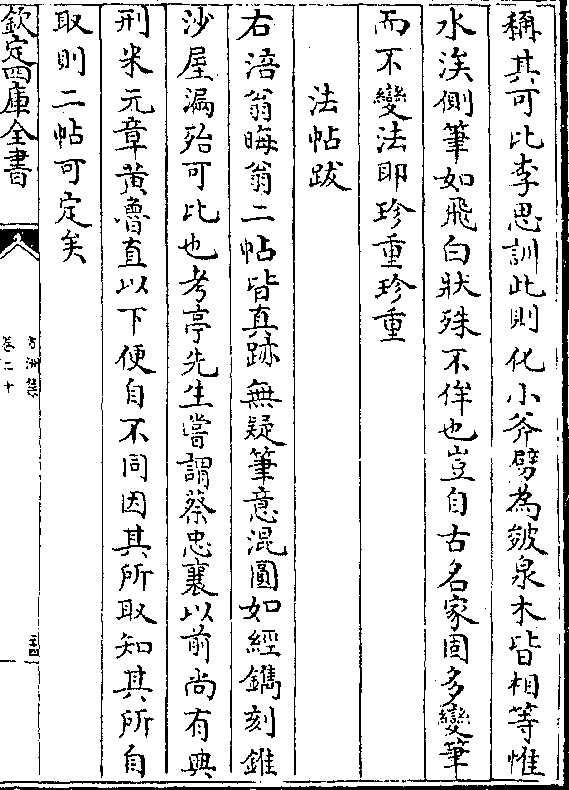 稱其可比李思訓此則化小斧劈為皴泉木皆相等惟
水涘側筆如飛白狀殊不侔也豈自古名家固多變筆
而不變法耶珍重珍重
法帖跋
右涪翁晦翁二帖皆真跡無疑筆意混圓如經鐫刻錐
沙屋漏殆可比也考亭先生嘗謂蔡忠襄以前尚有典
刑米元章黄魯直以下便自不同因其所取知其所自
取則二帖可定矣
欽定四庫全書
方洲集
卷二十